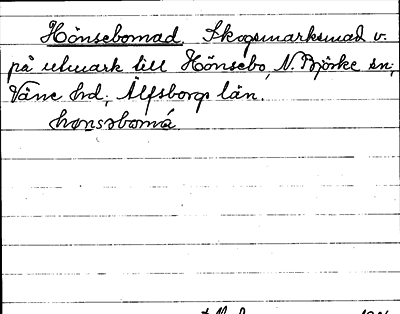 Hönsebomad. Skogsmarksmad v.
på utmark till Hönsebo, N. Björke sn;
Väne hd, Älfsborgs län.
hønsəbomá